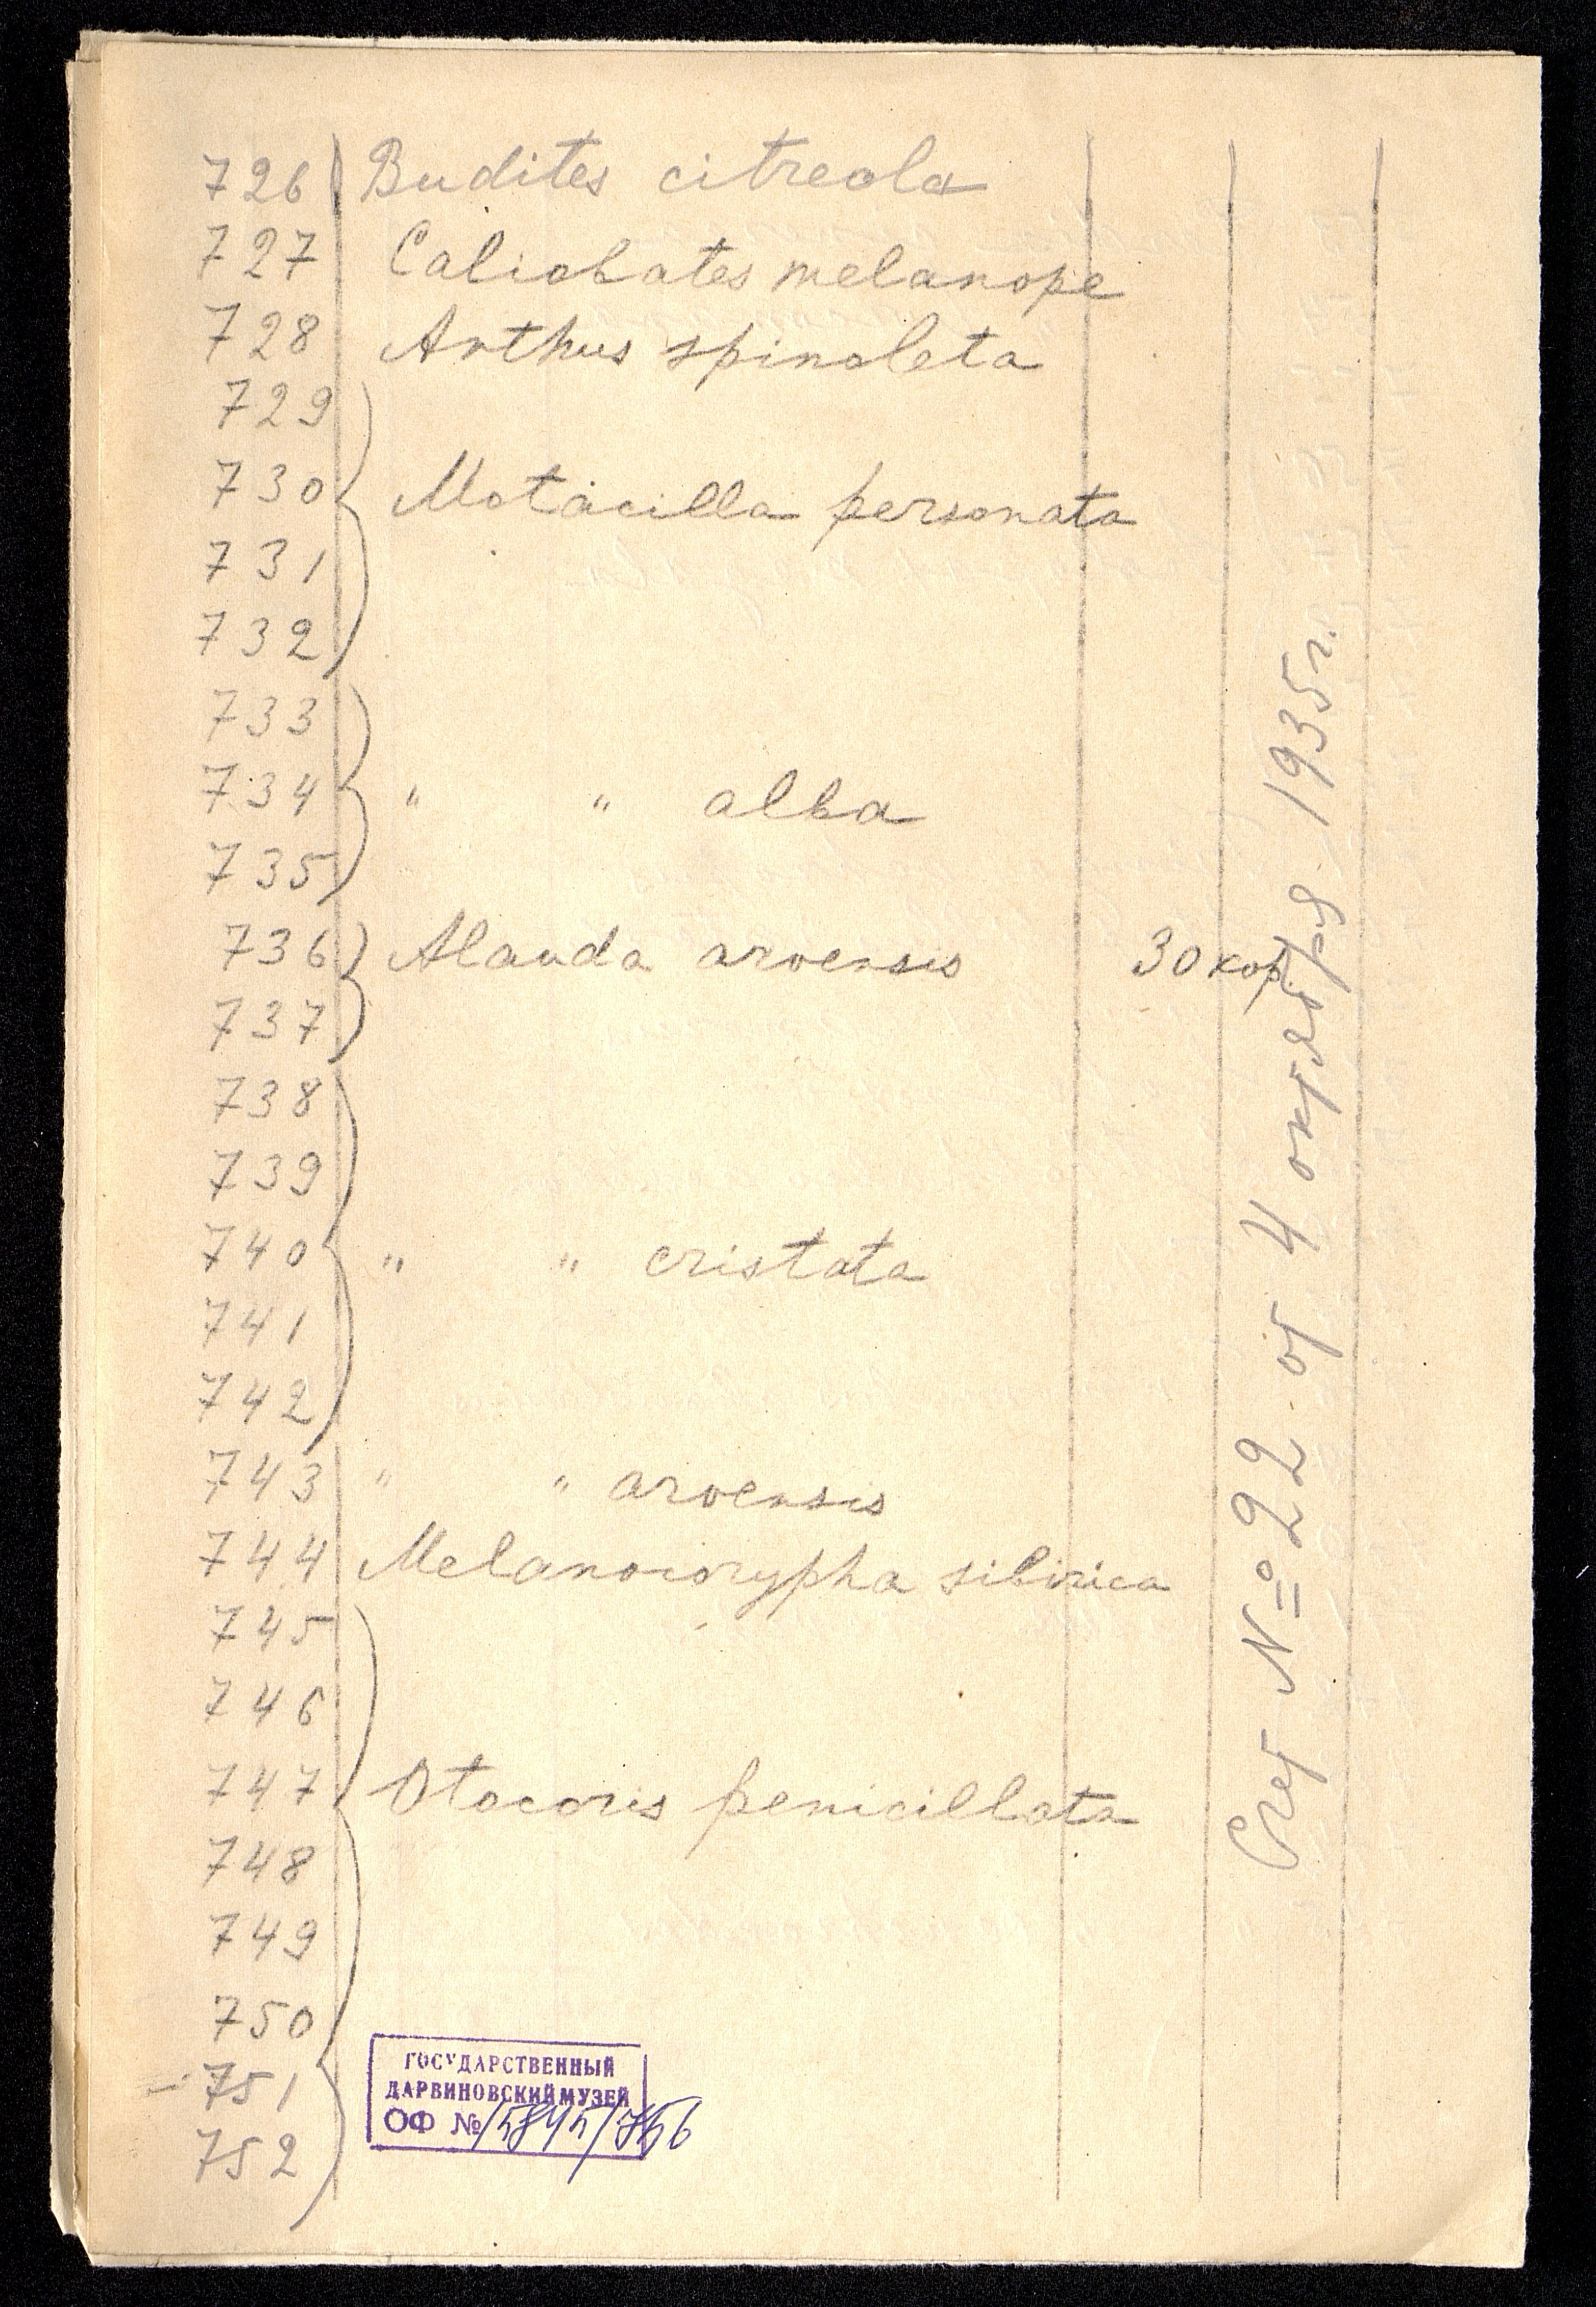 726 Budites citreola
727 Caliobates melanope
728 Anthus spinoleta
729
730 Motacilla personata
731
732
733
734 " " alba
735
736 Alauda arvensis 30 коп.
737
738
739
740 " " cristata
741
742
743 " " arvensis
744 Melanocorypha sibirica
745
746
747 Otocoris penicillata
748
749
750
751
752
Счет № 22 от 4 октября 1935 г.
ГОСУДАРСТВЕННЫЙ
ДАРВИНОВСКИЙ МУЗЕЙ
ОФ №